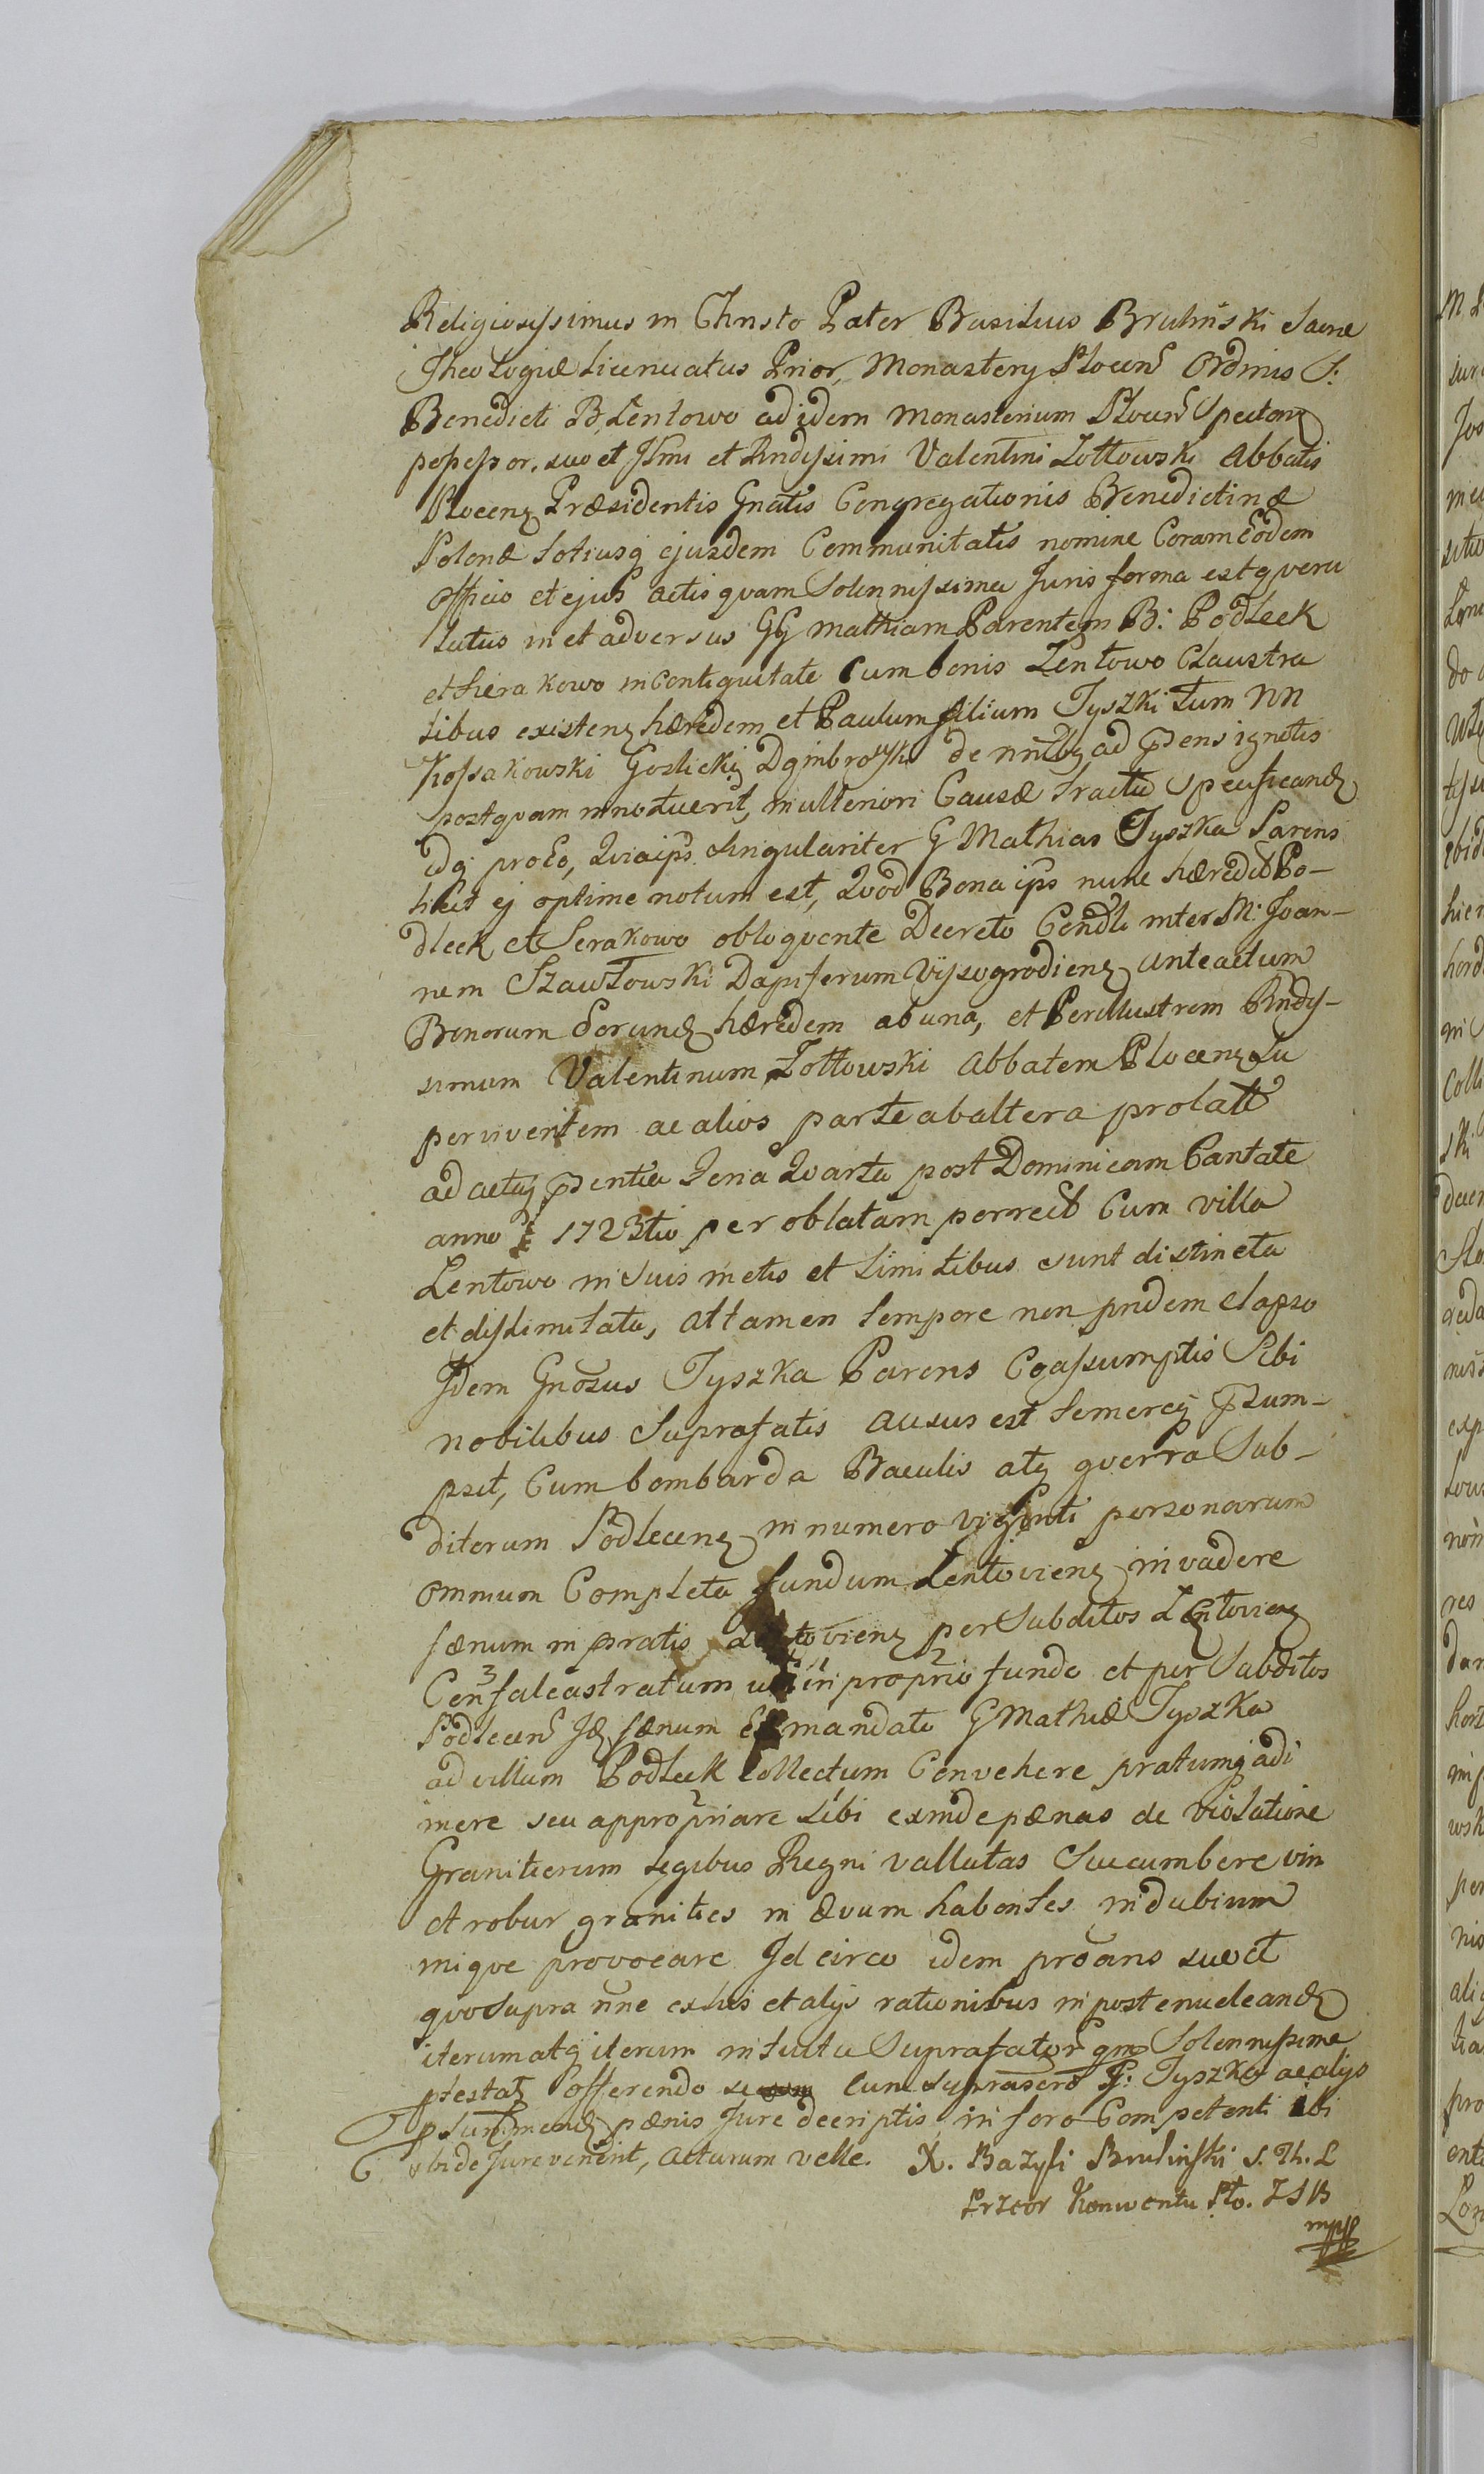 Religiosyssimus in Christo Pater Basilius Brulinski Sacræ
Theologiæ Licenciatus Prior Monastery Plocens Ordinis S:
Benedicti B. Lentowo ad idem monasterium Plocens Spectanz
possessor, suo et Illmi et Rndyssimi Valentini Zołtowski Abbatis
Plocenz Præsidentis Gnalis Congregationis Benedictinæ
Polonæ totiusq ejusdem Communitatis nomine Coram Eodem
Officio et ejus actis qvam Solennissima Juris forma est qveru
latus in et adversus GG Mathiam Parentem B: Podleck
et Sierakowo in contiguitate Cum bonis Lentowo Claustra
libus existenz hæredem et Paulum filium Tyszki tum NN
Kossakowski Goslicki de nnibz ad pens ignotis
postqvam innotuerit, in ulteriori Causæ tractu Specificandz
idq pro Eo, Qvia ips. Singulariter G Mathias Tyszka Parens
licet ej optime notum est, Qvod Bona ips nunc hæredit Po-
dleck et Serakowo obloqvente Decreto inter M: Joan-
nem Szawłowski Dapiferum Vyssogrodienz anteactum
Bonorum Eorundz hæredem ab una, et Perillustrem Rndys-
simum Valentinum Zołtowski Abbatem Plocenz Su
perviventem ac alios parte ab altera prolatt
ad acta psentia Feria Qvarta post Dominicam Cantate
anno 1723tio per oblatam porrect Cum villa
Lentowo in suis metis et limitibus sunt distincta
et dislimitata, attamen tempore non pridem elapso
Idem Gnosus Tyszka Parens Coassumptis Sibi
nobilibus Suprafatis ausus est temereq psum-
psit, Cum bombarda Baculis atq gverra Sub-
ditorum Podlecenz in numero viginti personarum
omnium Completa fundum Lentovienz invadere
fænum in pratis Lentovienz per Subditos Lentovienz
falcastratum in proprio fundo et per Subditos
Podlecens Idz fænum Ex mandato G Mathiæ Tyszka
ad villam Podleck Collectum Convehere pratumq adi
mere seu appropriare sibi exinde pænas de violatione
Granitierum legibus Regni vallatas Succumbere vim
et robur granities in ævum habentes in dubium
inique provocare Id circo idem proans suo et
quo supra nne ex his et alys rationibus in post enucleandz
iterum atq iterum intuitu Suprafator gm Solennissime
ptestatz offerendo se cum suprascro G: Tyszka ac alys
pænis Jure descriptis in foro Competenti ibi
ubi de Jure venerit, acturum velle. X. Bazyli Brulinski S. Th. L
Przeor Konwentu Pło. Z S B
mpp